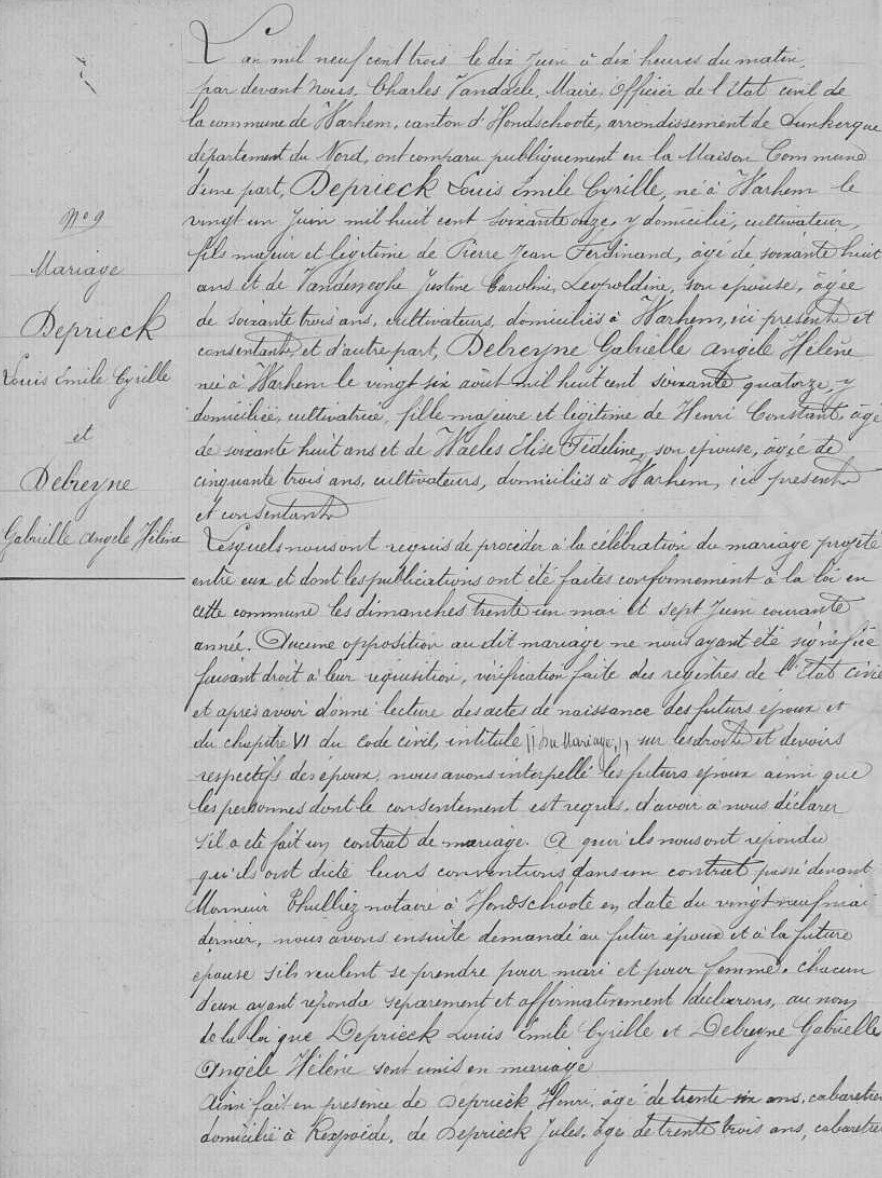 N° 9
Mariage
Deprieck
Louis Émile Cyrille
et
Debreyne
Gabrielle Angèle Hélène
L'an mil neuf cent trois le dix Juin à dix heures du matin,
par devant Nous, Charles Vandaele, Maire, Officier de l'Etat civil de
la commune de Warhem, canton d'Hondschoote, arrondissement de Dunkerque
département du Nord, ont comparu publiquement en la Maison Commune
d'une part, Deprieck Louis Emile Cyrille, né à Warhem le
vingt un Juin mil huit cent soixante onze, y domicilié, cultivateur,
fils majeur et légitime de Pierre Jean Ferdinand, âgé de soixante huit
ans et de Justine Caroline, Léopoldine, son épouse, âgée
de soixante trois ans, cultivateurs, domiciliés à Warhem, ici présents et
consentants, et d'autre part, Debreyne Gabrielle Angèle Hélène
née à Warhem le vingt six août mil huit cent soixante quatorze, y
domiciliée, cultivatrice, fille majeure et légitime de Henri Constant, âgé
de soixante huit ans et de Waeles Elise Fideline, son épouse, âgée de
cinquante trois ans, cultivateurs, domiciliés à Warhem, ici présents
et consentants
Lesquels nous ont requis de procéder à la célébration du mariage projeté
entre eux et dont les publications ont été faites conformément à la loi en
cette commune les dimanches trente un mai et sept Juin courante
année. Aucune opposition au dit mariage ne nous ayant été signifiée
faisant droit à leur réquisition, vérification faite des registres de l'Etat civil
et après avoir donné lecture des actes de naissance des futurs époux et
du chapitre VI du Code civil, intitulé "Du Mariage," sur les droits et devoirs
respectifs des époux, nous avons interpellé les futurs époux ainsi que
les personnes dont le consentement est requis, d'avoir à nous déclarer
s'il a été fait un contrat de mariage. A quoi ils nous ont répondu
qu'ils ont dicté leurs conventions dans un contrat passé devant
Monsieur Thulliez notaire à Hondschoote en date du vingt neuf mai
dernier, nous avons ensuite demandé au futur époux et à la future
épouse s'ils veulent se prendre pour mari et pour femme. Chacun
d'eux ayant répondu séparément et affirmativement déclarons, au nom
de la loi que Deprieck Louis Emile Cyrille et Debreyne Gabrielle
Angèle Hélène sont unis en mariage
Ainsi fait en présence de Deprieck Henri, âgé de trente six ans, cabaretier
domicilié à Rexpoëde, de Deprieck Jules, âgé de trente trois ans, cabaretier